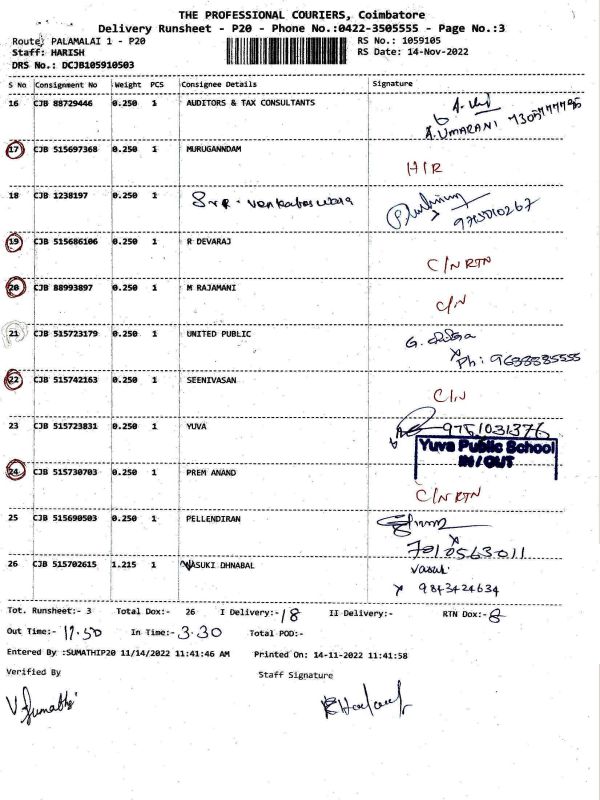 THE PROFESSIONAL COURIERS, Coimbatore
Delivery Runsheet - P20 - Phone No.:0422-3505555 - Page No.:3
Route: PALAMALAI 1 - P20 RS No.: 1059105
Staff: HARISH RS Date: 14-Nov-2022
DRS No.: DCJB105910503
S No Consignment No Weight PCS Consignee Details Signature
16 CJB 88729446 0.250 1 AUDITORS & TAX CONSULTANTS
A. UMARANI
17 CJB 515697368 0.250 1 MURUGANNDAM
H/R
18 CJB 1238197 0.250 1
9715010267
19 CJB 515686106 0.250 1 R DEVARAJ
C/N RTN
20 CJB 88993897 0.250 1 M RAJAMANI
C/N
21 CJB 515723179 0.250 1 UNITED PUBLIC
Ph: 9688585555
22 CJB 515742163 0.250 1 SEENIVASAN
C/N
23 CJB 515723831 0.250 1 YUVA
9751031376
Yuva Public School
IN / OUT
24 CJB 515730703 0.250 1 PREM ANAND
C/N RTN
25 CJB 515690503 0.250 1 PELLENDIRAN
7010563011
26 CJB 515702615 1.215 1 VASUKI DHNABAL
Vasuki
9843424634
Tot. Runsheet:- 3 Total Dox:- 26 I Delivery:- 18 II Delivery:- RTN Dox:- 8
Out Time:- 11.50 In Time:- 3.30 Total POD:-
Entered By :SUMATHIP20 11/14/2022 11:41:46 AM Printed On: 14-11-2022 11:41:58
Verified By Staff Signature
V. Sumathi